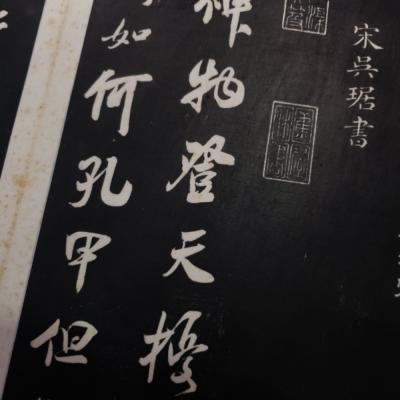 宋吳琚書
神物登天擾
如何孔甲但